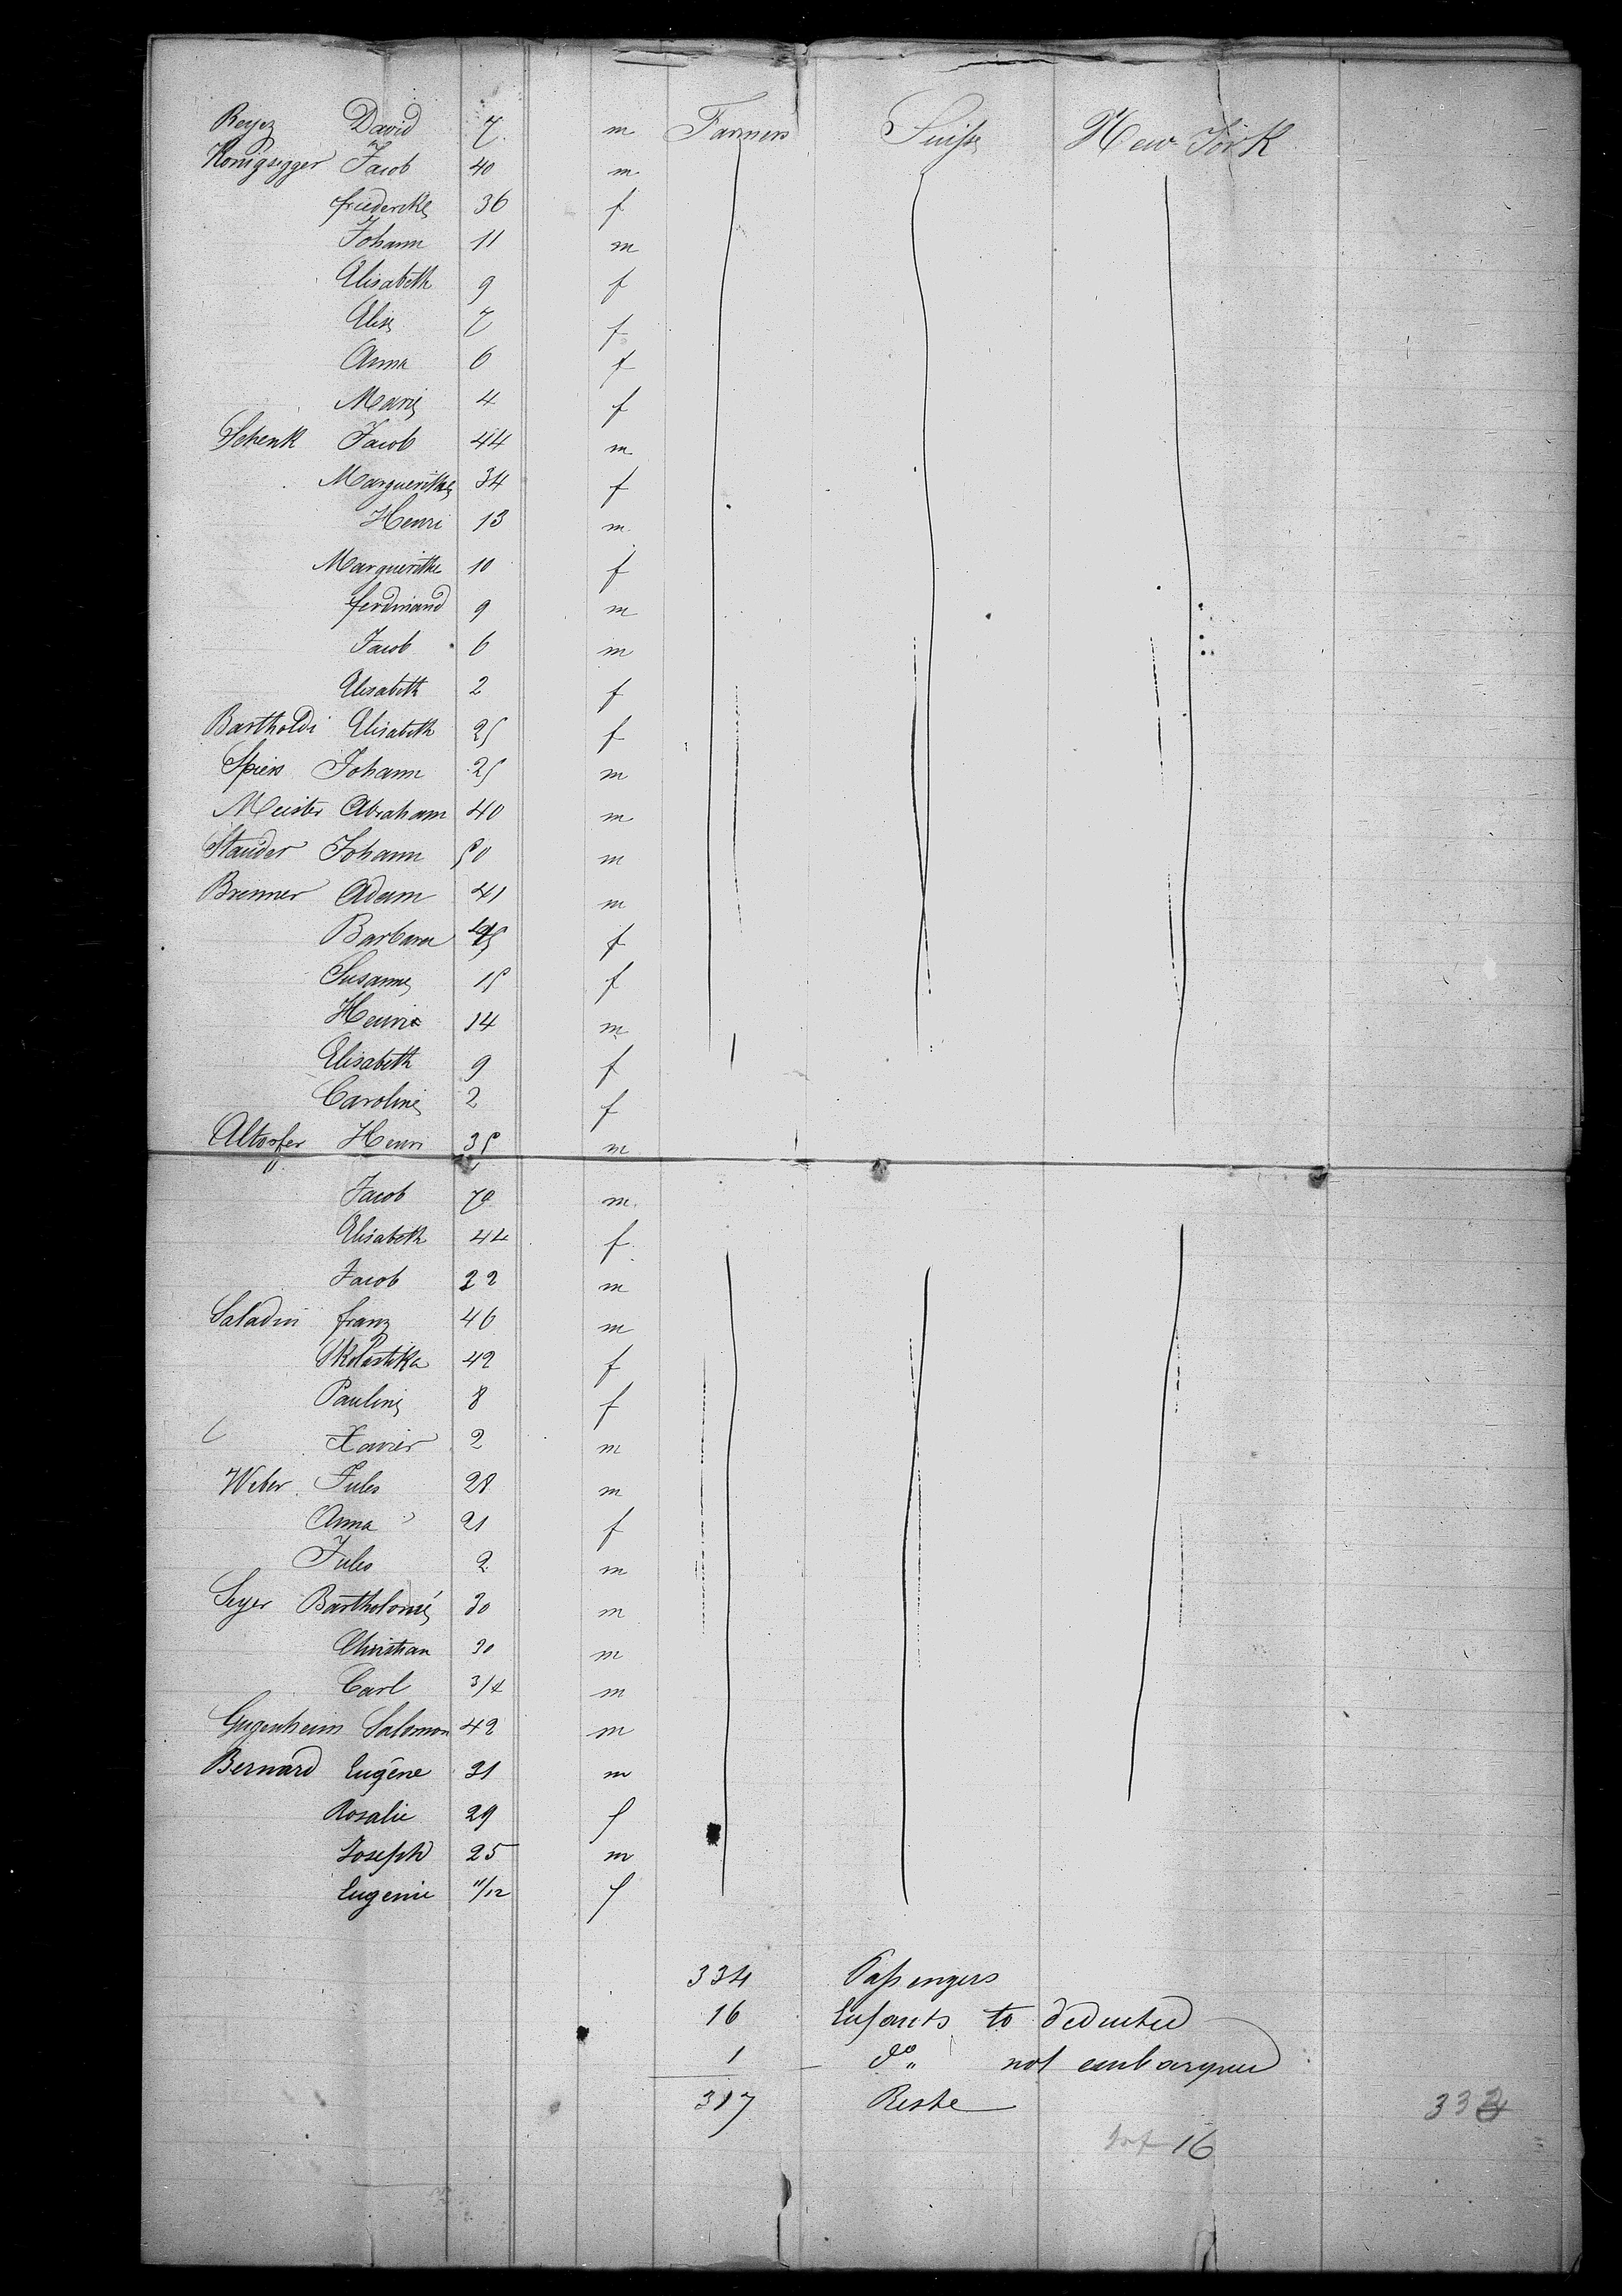 Reyez David 7 m Farmers Suisse New York
Königsegger Jacob 40 m
friedericke 36 f
Johann 11 m
Elisabeth 9 f
Elise 7 f
Anna 6 f
Marie 4 f
Schenk Jacob 44 m
Marguerithe 34 f
Henri 13 m
Marguerithe 10 f
ferdinand 9 m
Jacob 6 m
Elisabeth 2 f
Bartholdi Elisabeth 25 f
Spiess Johann 25 m
Meister Abraham 40 m
Stauder Johann 50 m
Brenner Adam 41 m
Barbara 45 f
Susanne 15 f
Henri 14 m
Elisabeth 9 f
Caroline 2 f
Altorfer Henri 35 m
"
Jacob 70 m
Elisabeth 44 f
Jacob 22 m
Saladin franz 46 m
Skolastika 42 f
Pauline 8 f
Xavier 2 m
Weber Jules 28 m
Anna 21 f
Jules 2 m
Seyer Bartholomé 30 m
Christian 30 m
Carl 3/4 m
Gugenheim Salomon 42 m
Bernard Eugène 31 m
Rosalie 29 f
Joseph 25 m
Eugenie 11/12 f
334 Passengers
16 Enfants to deducted
1 do " not embarqued
317 Reste
332
Inf 16